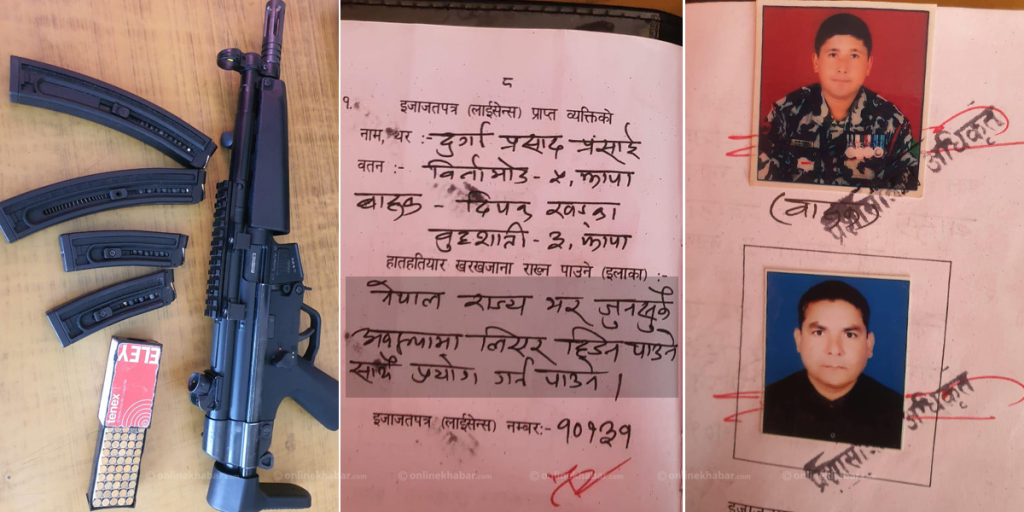 ELEY
tenex
८
१. इजाजतपत्र (लाईसेन्स) प्राप्त व्यक्तिको
नाम, थर :- दुर्गा प्रसाद प्रसाई
वतन :- विर्तामोड - ५, झापा
बाहक - दिपक खड्का
बुद्धशान्ती - ३, झापा
हातहतियार खरखजाना राख्न पाउने (इलाका) :-
नेपाल राज्य भर जुनसुकै
अवस्थामा लिएर हिडन पाउने
साथै प्रयोग गर्न पाउने ।
इजाजतपत्र (लाईसेन्स) नम्बर:- १०१३१
अधिकृत
अधिकृत
onlinekhabar.com
onlinekhabar.com
onlinekhabar.com